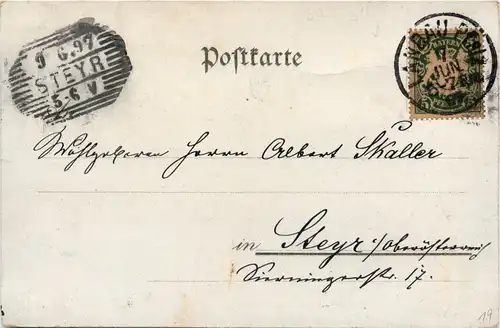 9 6.97
STEYR
5-6 V
Postkarte
JUN
Wohlgeboren Herrn Albert Skaller
in Steyr s/oberösterreich
Sierningerstr. 17.
19